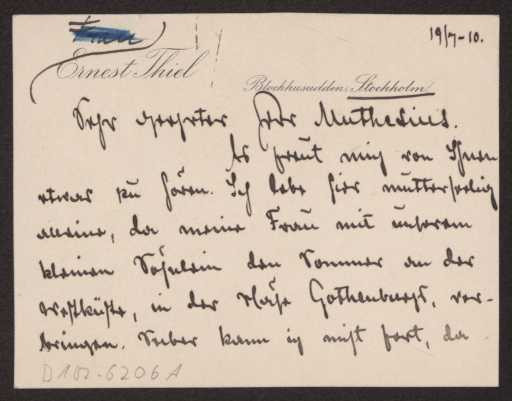 19/7-10.
Ernest Thiel
Blockhusudden, Stockholm
Sehr geehrter Herr Muthesius.
Es freut mich von Ihnen
etwas zu hören. Ich lebe hier mutterseelig
alleine, da meine Frau mit unserem
kleinen Söhnlein den Sommer an der
Westküste, in der Nähe Gothenburgs, ver-
bringen. Selber kann ich nicht fort, da
D 102-6206 A